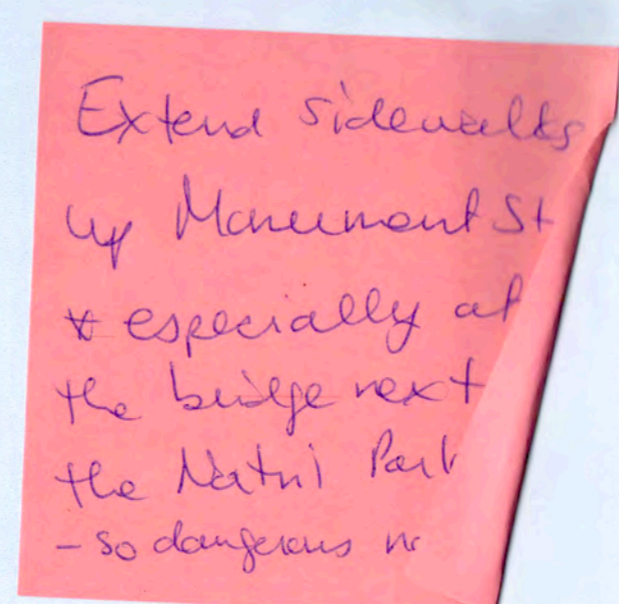 Extend sidewalks
up Monument St
& especially at
the bridge next
the Natnl Park
- so dangerous